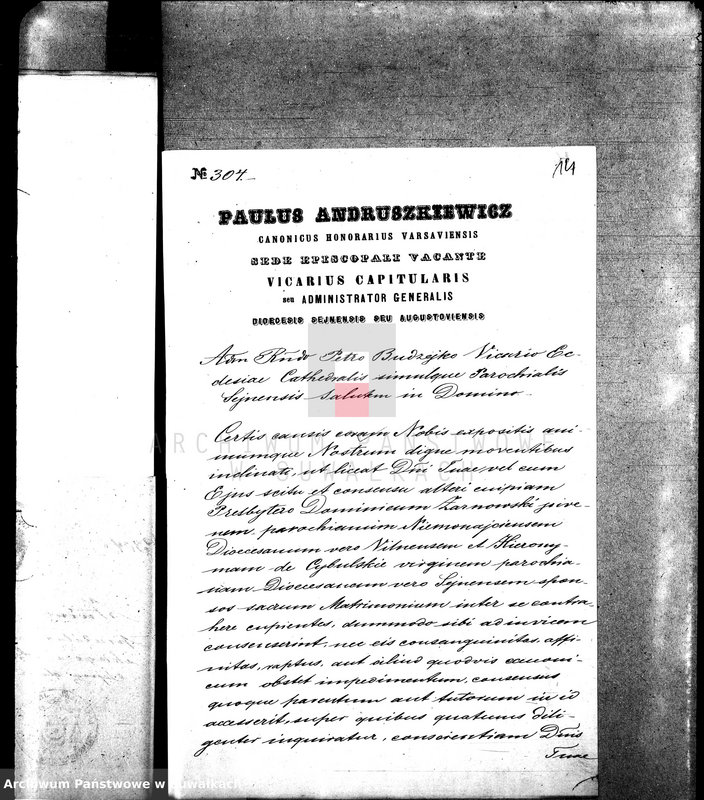 № 304.
14
PAULUS ANDRUSZKIEWICZ
CANONICUS HONORARIUS VARSAVIENSIS
SEDE EPISCOPALI VACANTE
VICARIUS CAPITULARIS
seu ADMINISTRATOR GENERALIS
DIOECESIS SEJNENSIS SEU AUGUSTOVIENSIS
Adm Rndo Petro Budzejko Vicario Ec-
clesiae Cathedralis simulque Parochialis
Sejnensis Salutem in Domino.
Certis causis coram Nobis expositis ani-
mumque Nostrum digne moventibus
inclinati, ut liceat Dni Tuae, vel cum
Ejus scitu et consensu alteri cuipiam
Presbytero Dominicum Żarnowski juve-
nem, parochianum
Dioecesanum vero Vilnensem et Hierony-
mam de Cybulskie virginem parochia-
nam Dioecesanam vero Sejnensem spon-
sos sacrum Matrimonium inter se contra-
here cupientes, dummodo sibi ad invicem
consenserint, nec eis consanguinitas, affi-
nitas, raptus, aut aliud quodvis canoni-
cum obstet impedimentum, consensus
quoque parentum aut tutorum in id
accesserit, super quibus quatenus dili-
genter inquiratur, conscientiam Dnis
Tuae
ARCHIWUM PAŃSTWOWE
W SUWAŁKACH
Archiwum Państwowe w Suwałkach